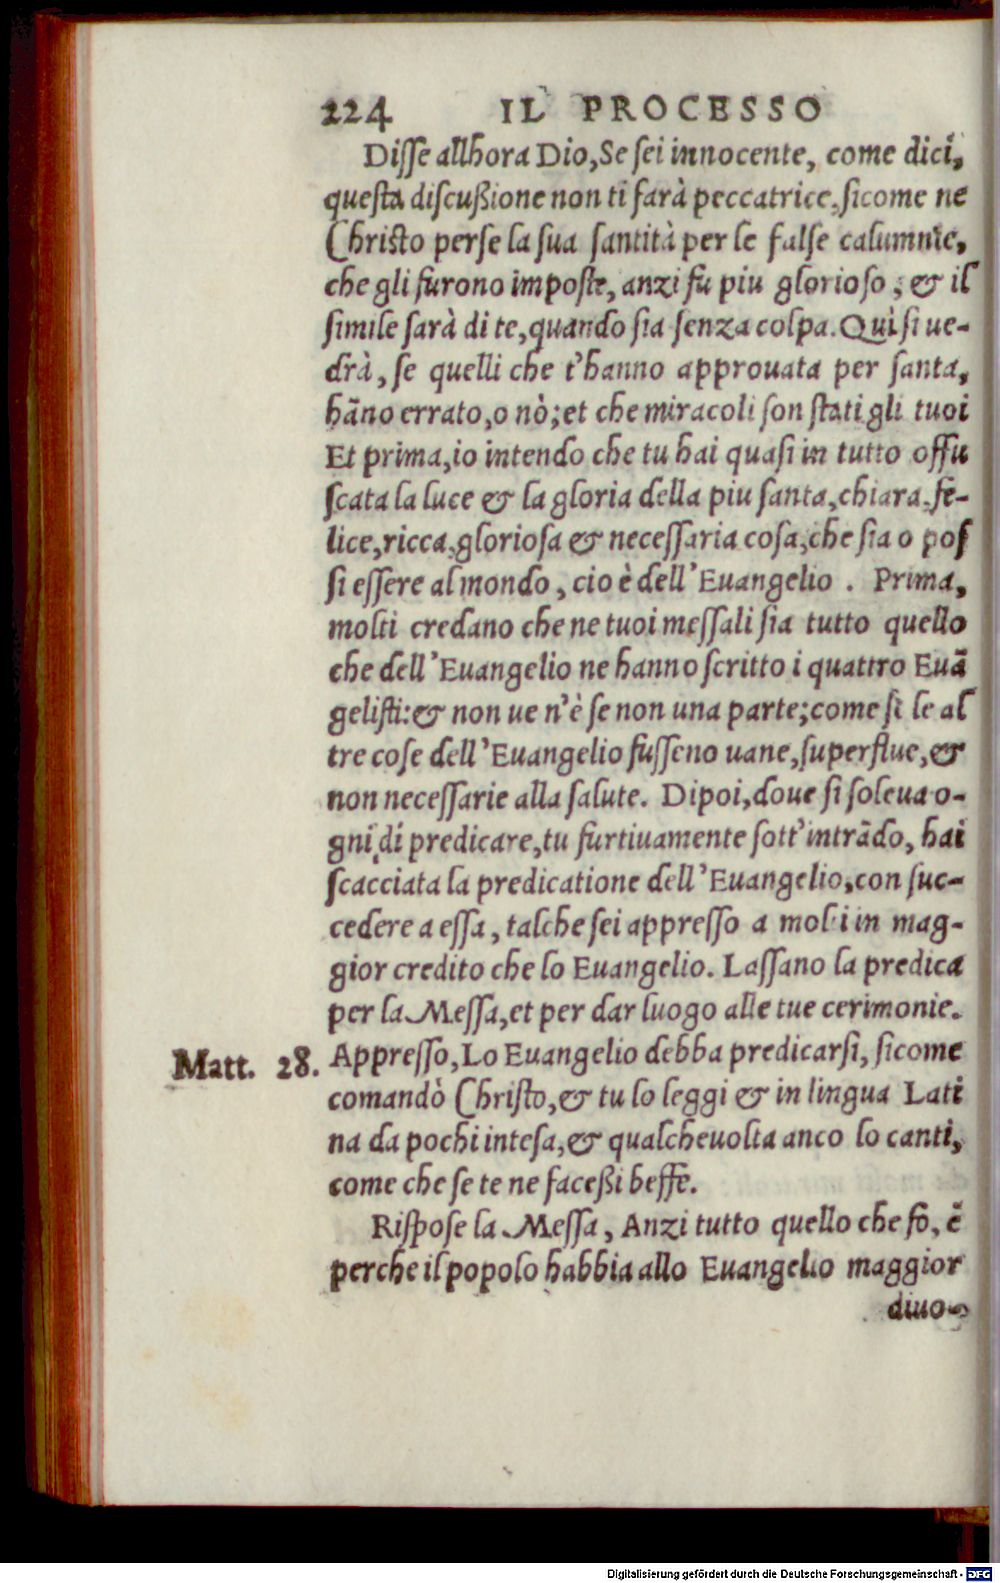 224 IL PROCESSO
Disse allhora Dio, Se sei innocente, come dici,
questa discußione non ti farà peccatrice, sicome ne
Christo perse la sua santità per le false calumnie,
che gli furono imposte, anzi fu piu glorioso, & il
simile sarà di te, quando sia senza colpa. Quì si ue-
drà, se quelli che t'hanno approuata per santa,
hāno errato, o nò; et che miracoli son stati gli tuoi
Et prima, io intendo che tu hai quasi in tutto offu
scata la luce & la gloria della piu santa, chiara, fe-
lice, ricca, gloriosa & necessaria cosa, che sia o pos
si essere al mondo, cio è dell'Euangelio. Prima,
molti credano che ne tuoi messali sia tutto quello
che dell'Euangelio ne hanno scritto i quattro Euā
gelisti: & non ue n'è se non una parte; come si le al
tre cose dell'Euangelio fusseno uane, superflue, &
non necessarie alla salute. Dipoi, doue si soleua o-
gni di predicare, tu furtiuamente sott'intrādo, hai
scacciata la predicatione dell'Euangelio, con suc-
cedere a essa, talche sei appresso a molti in mag-
gior credito che lo Euangelio. Lassano la predica
per la Messa, et per dar luogo alle tue cerimonie.
Matt. 28. Appresso, Lo Euangelio debba predicarsi, sicome
comandò Christo, & tu lo leggi & in lingua Lati
na da pochi intesa, & qualcheuolta anco lo canti,
come che se te ne faceßi beffe.
Rispose la Messa, Anzi tutto quello che fò, è
perche il popolo habbia allo Euangelio maggior
diuo-
Digitalisierung gefördert durch die Deutsche Forschungsgemeinschaft - DFG